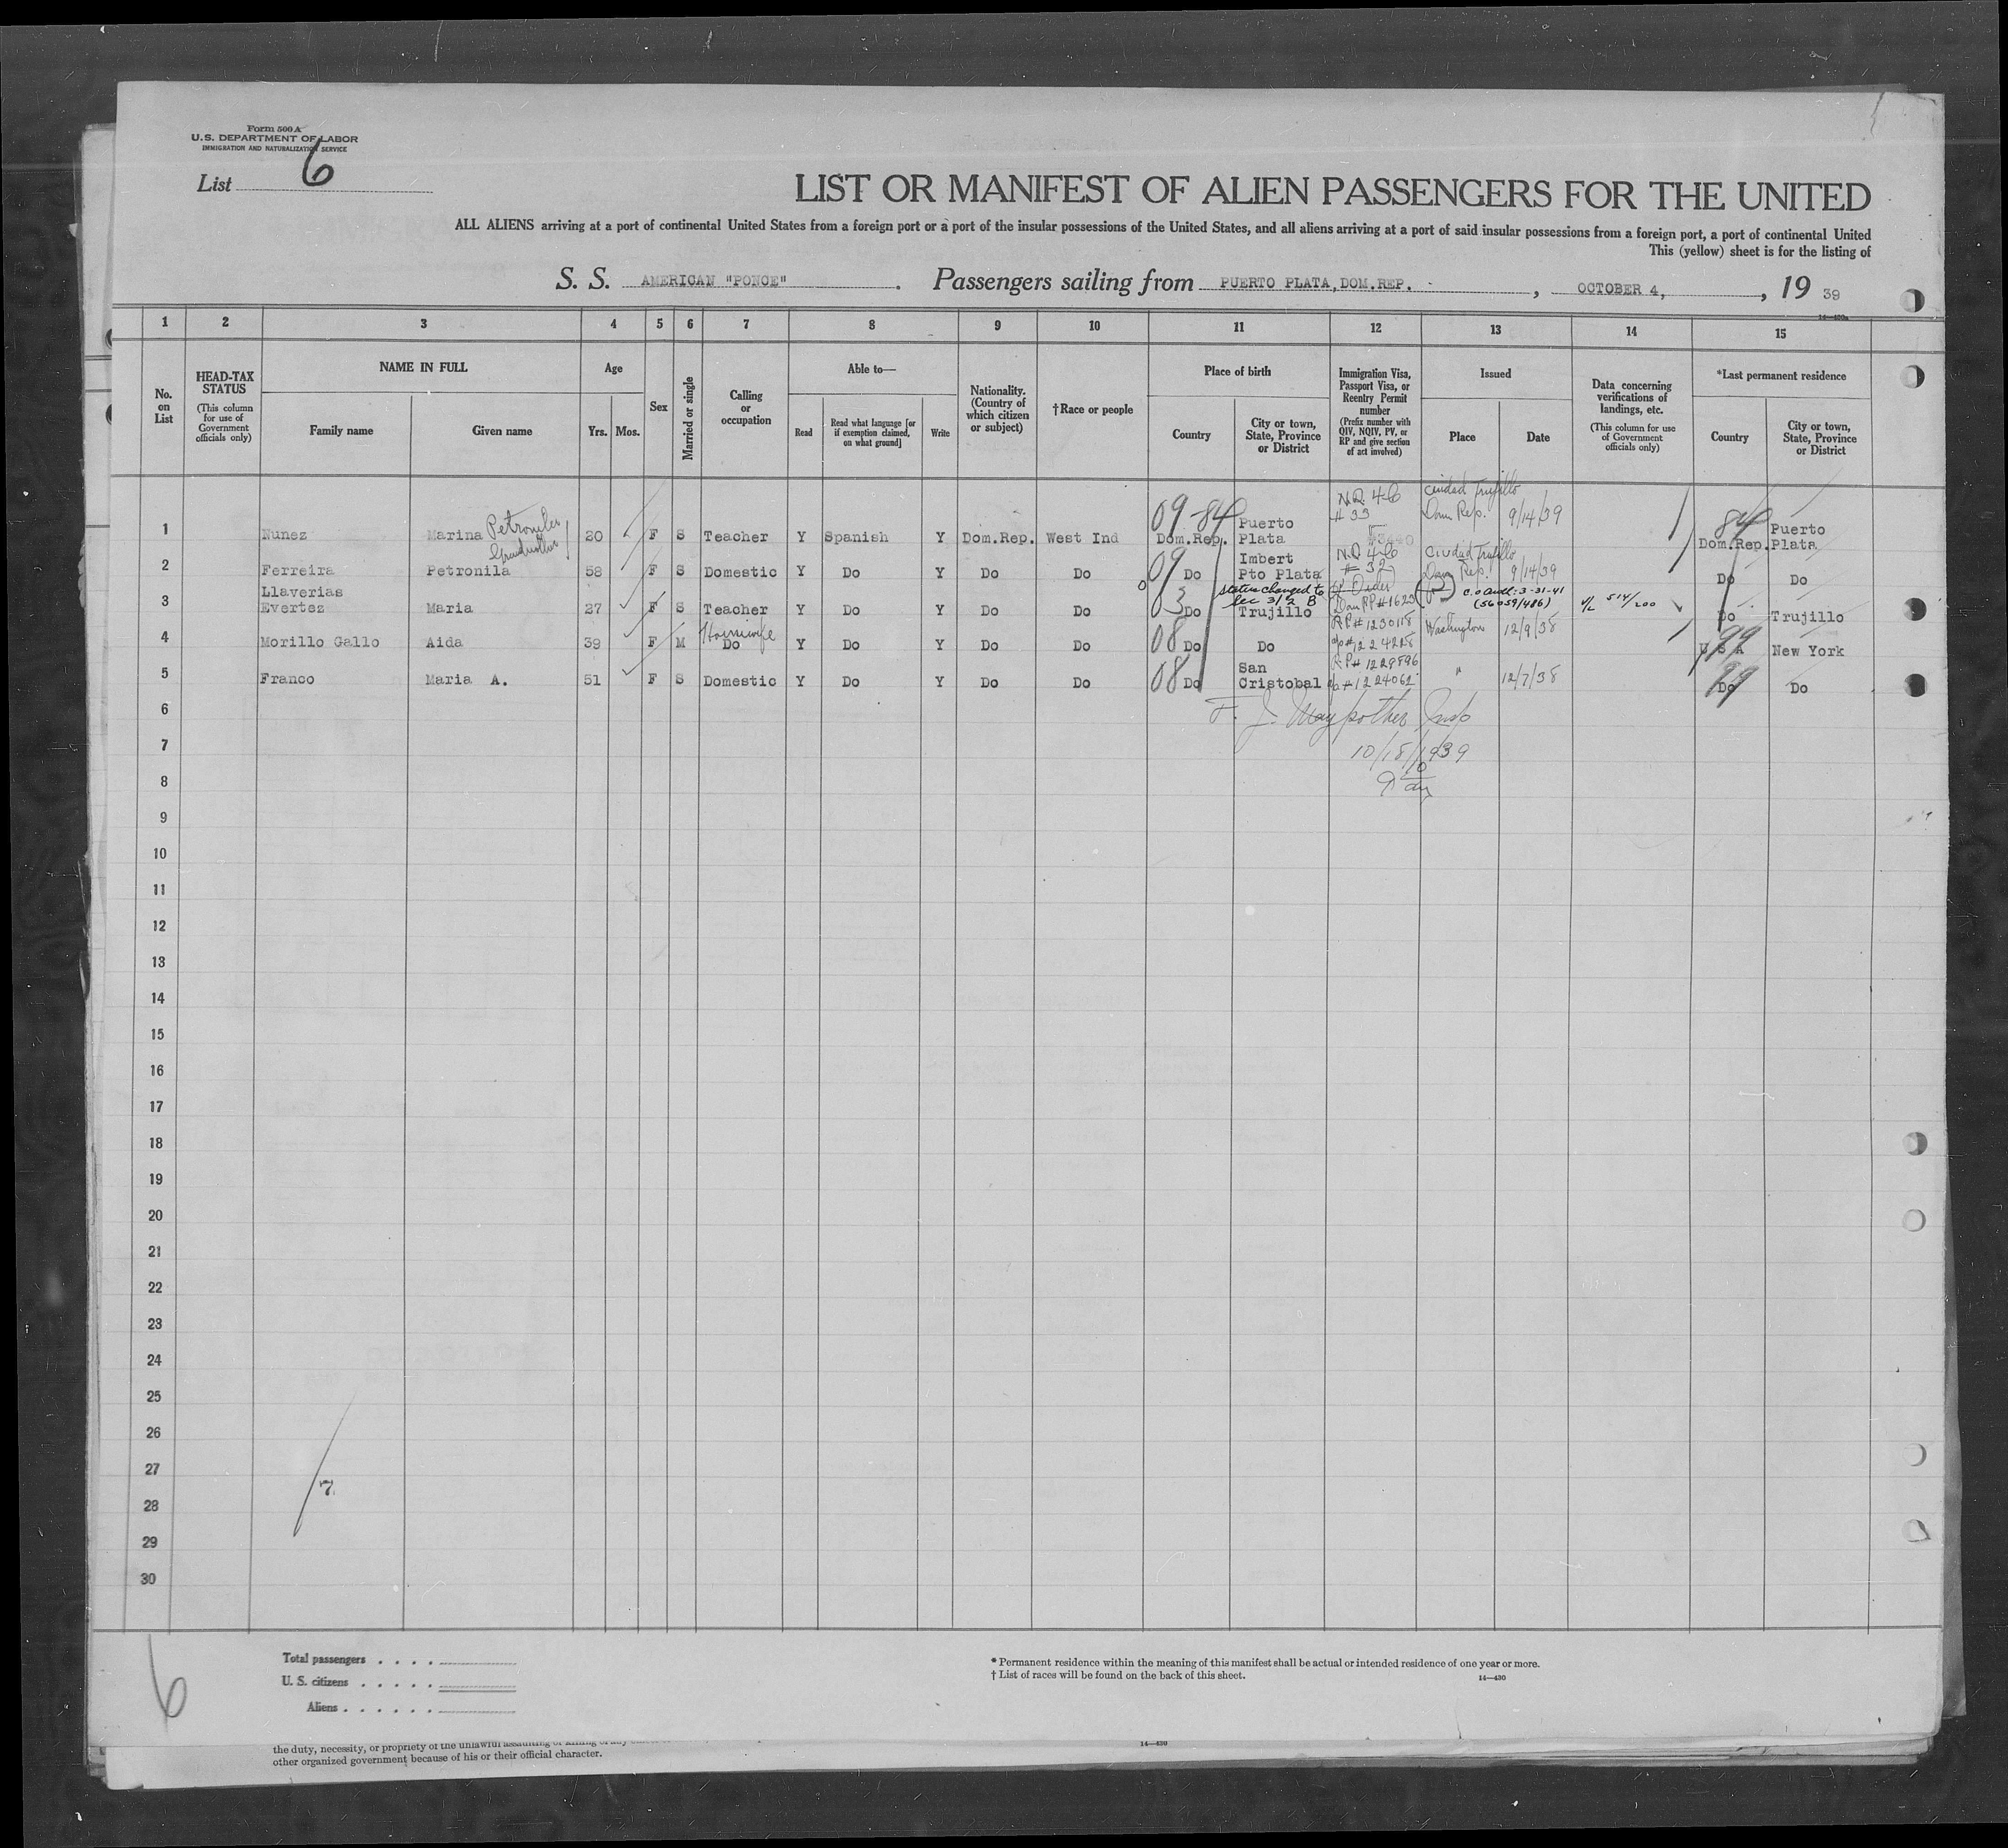 Form 500 A
U.S. DEPARTMENT OF LABOR
IMMIGRATION AND NATURALIZATION SERVICE
List 6
LIST OR MANIFEST OF ALIEN PASSENGERS FOR THE UNITED
ALL ALIENS arriving at a port of continental United States from a foreign port or a port of the insular possessions of the United States, and all aliens arriving at a port of said insular possessions from a foreign port, a port of continental United
This (yellow) sheet is for the listing of
S. S. AMERICAN "PONCE" . Passengers sailing from PUERTO PLATA, DOM.REP. , OCTOBER 4, , 19 39
14—430a
1 2 3 4 5 6 7 8 9 10 11 12 13 14 15
No. on List
HEAD-TAX STATUS (This column for use of Government officials only)
NAME IN FULL
Family name
Given name
Age
Yrs. Mos.
Sex
Married or single
Calling or occupation
Able to—
Read
Read what language [or if exemption claimed, on what ground]
Write
Nationality. (Country of which citizen or subject)
†Race or people
Place of birth
Country
City or town, State, Province or District
Immigration Visa, Passport Visa, or Reentry Permit number (Prefix number with QIV, NQIV, PV, or RP and give section of act involved)
Issued
Place
Date
Data concerning verifications of landings, etc. (This column for use of Government officials only)
*Last permanent residence
Country
City or town, State, Province or District
1 Nunez Marina 20 F S Teacher Y Spanish Y Dom.Rep. West Ind 09-84 Dom.Rep. Puerto Plata N.Q. 4-6 # 33 Ciudad Trujillo Dom Rep. 9/14/39 84 Dom.Rep. Puerto Plata
2 Ferreira Petronila 58 F S Domestic Y Do Y Do Do 09 Do Imbert Pto Plata N.Q 4-6 # 32 Ciudad Trujillo Dom Rep. 9/14/39 Do Do
3 Llaverias Evertsz Maria 27 F S Teacher Y Do Y Do Do 03 Do Trujillo status changed to Sec 3/2 B Dom RP #1623 C.O Auth: 3-31-41 (56059/486) V/L 514/200 Do Trujillo
4 Morillo Gallo Aida 39 F M Housewife Do Y Do Y Do Do 08 Do Do RP# 1230118 Washington 12/9/38 99 U S A New York
5 Franco Maria A. 51 F S Domestic Y Do Y Do Do 08 Do San Cristobal RP# 1229896 #1224062 " 12/7/38 99 Do Do
6
F. J. Maypother Insp
7
10/18/1939
8
9 10 am
9
10
11
12
13
14
15
16
17
18
19
20
21
22
23
24
25
26
27
7.
28
29
30
6
Total passengers . . . .
U. S. citizens . . . . .
Aliens . . . . . .
* Permanent residence within the meaning of this manifest shall be actual or intended residence of one year or more.
† List of races will be found on the back of this sheet.
14—430
the duty, necessity, or propriety of the unlawful assaulting or killing of any
14—430
other organized government because of his or their official character.